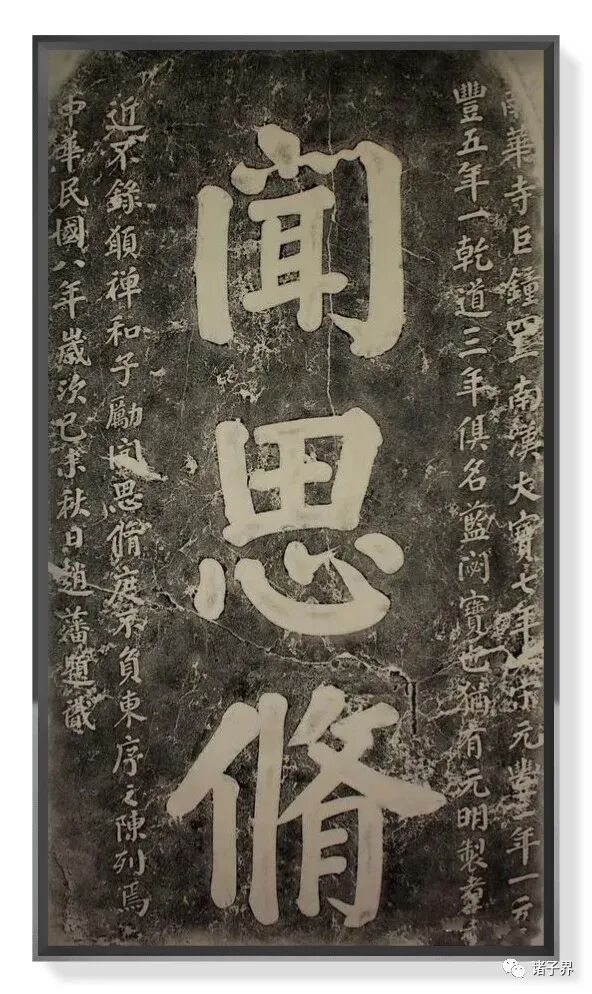 南華寺巨鐘四南漢大寶七年一宋元豐年一元
豐五年一乾道三年俱名藍閟寶也猶有元明製者
聞思脩
近不錄願禪和子勵聞思脩庶不負東序之陳列焉
中華民國八年歲次己未秋日趙藩題識
诸子界